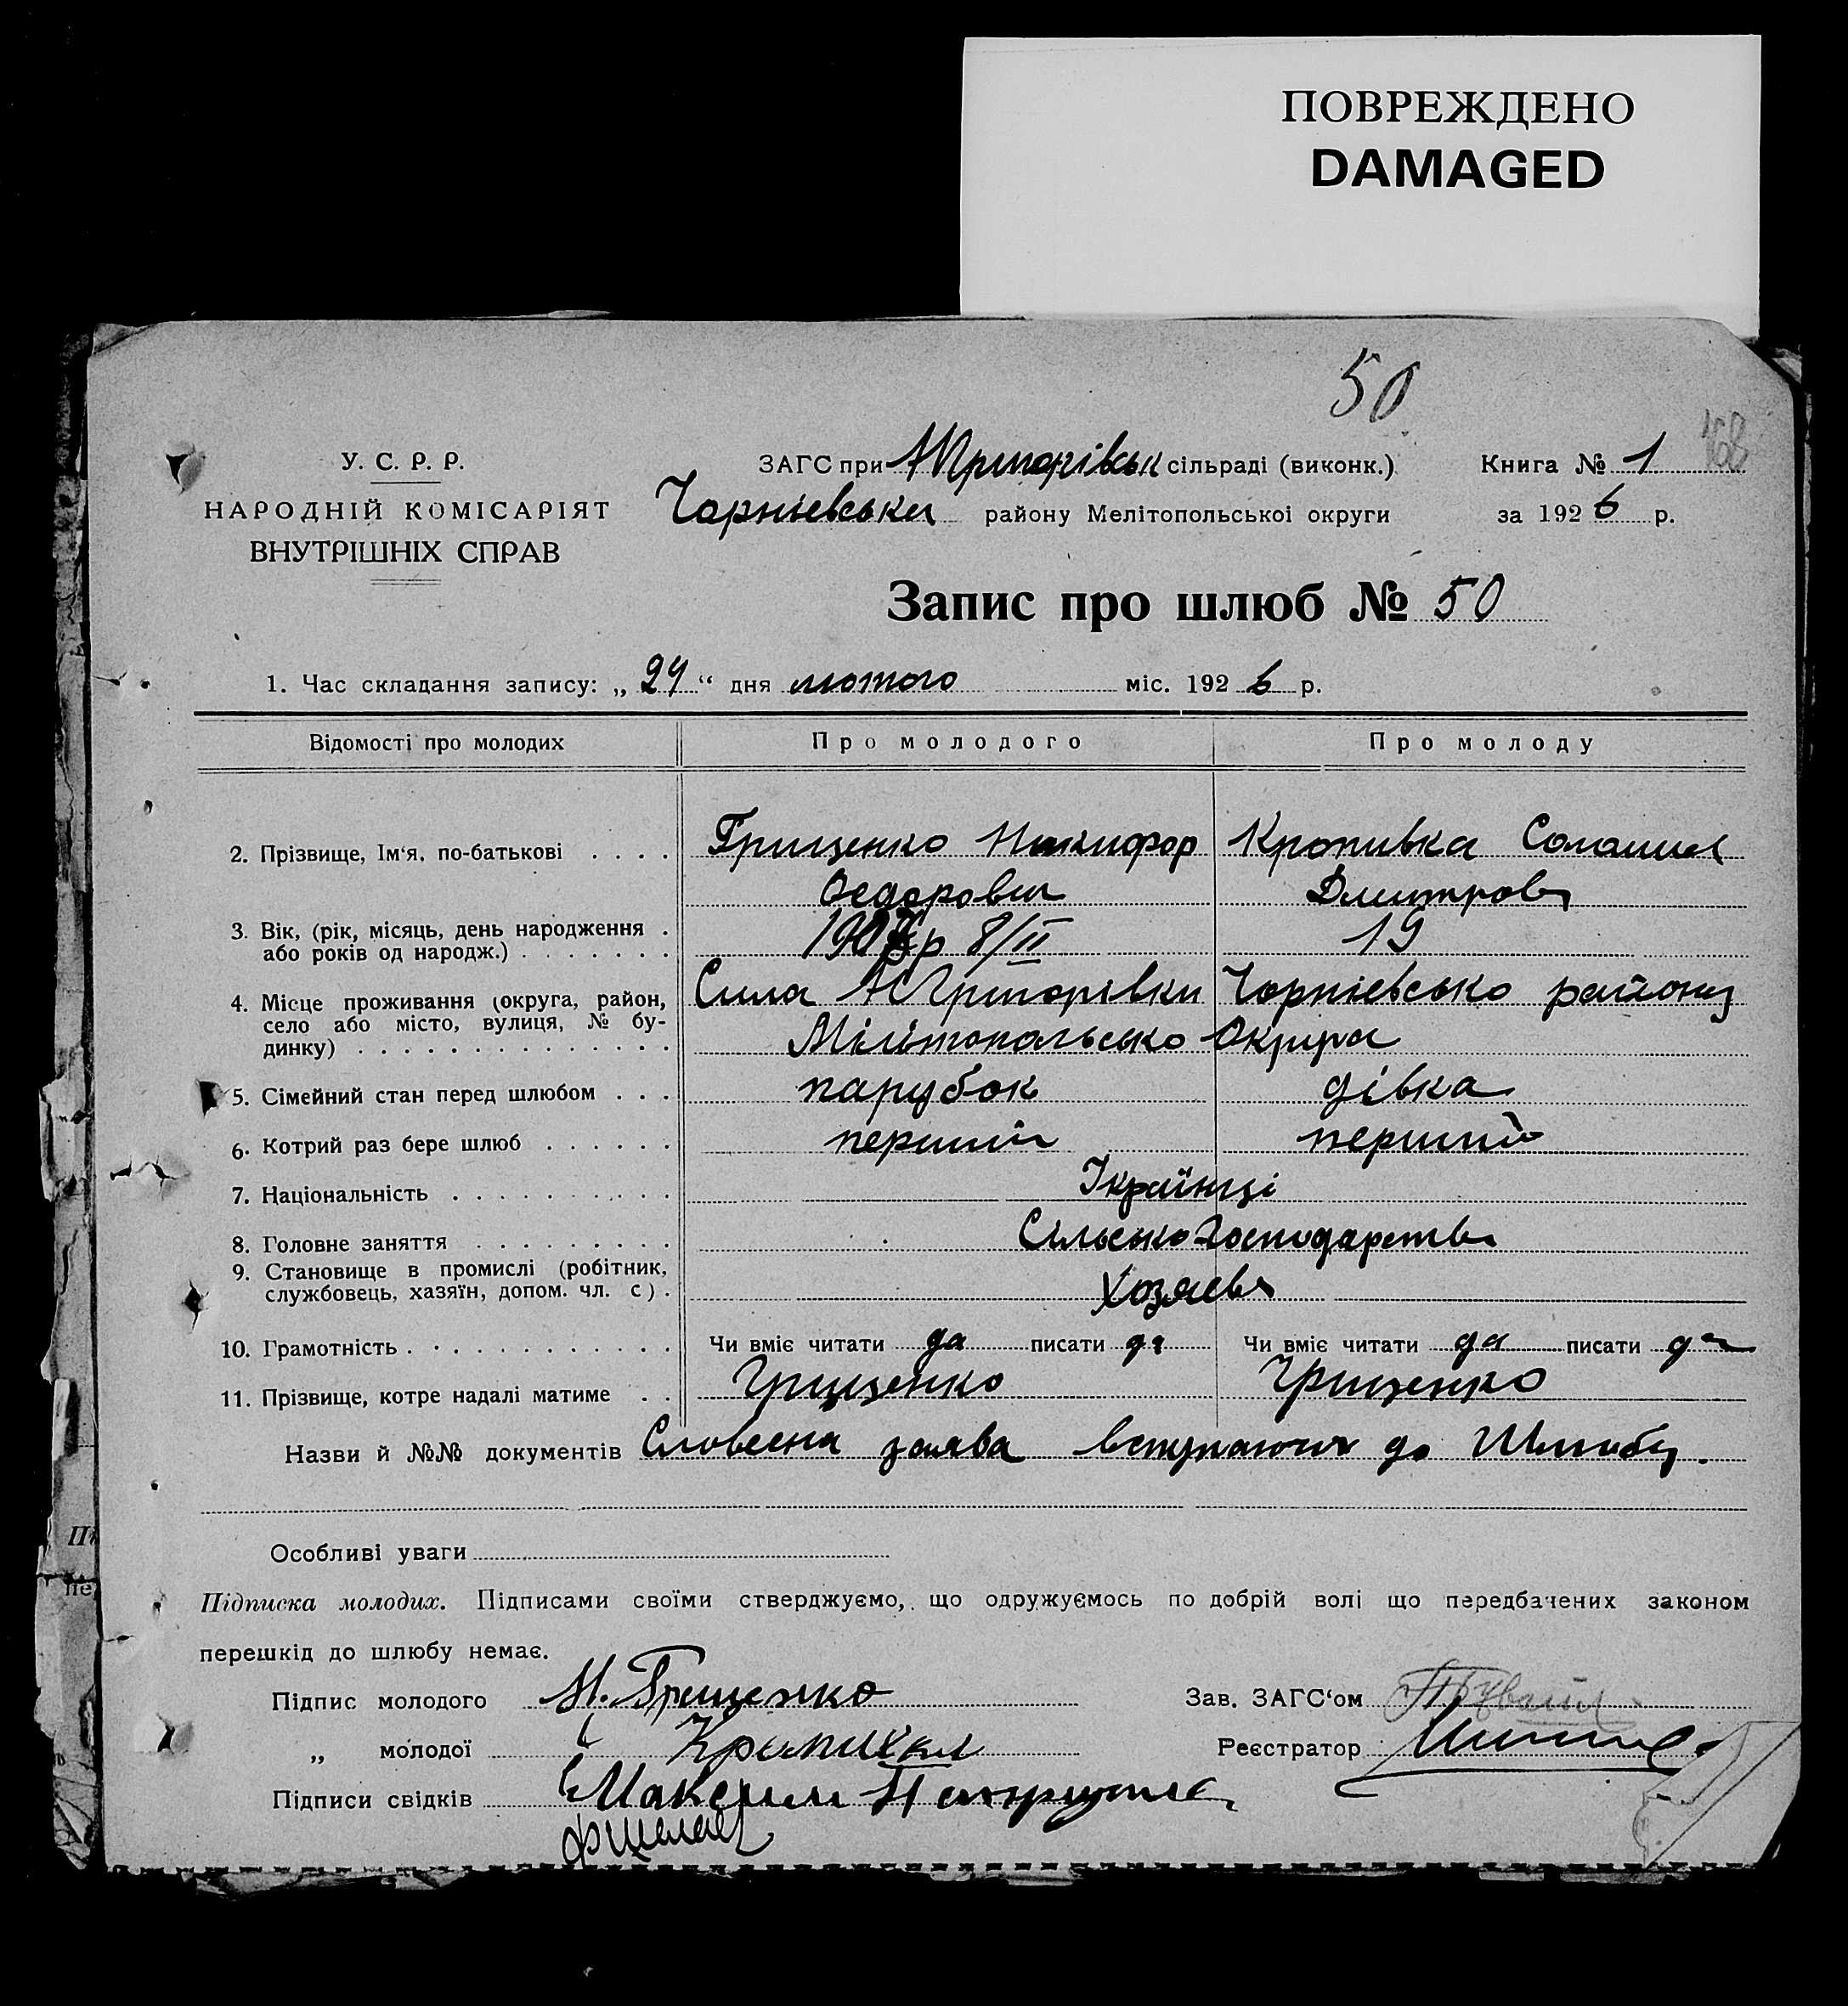 ПОВРЕЖДЕНО
DAMAGED
50
У. С. Р. Р.
НАРОДНІЙ КОМІСАРІЯТ
ВНУТРІШНІХ СПРАВ
ЗАГС при сільраді (виконк.) Книга № 1
району Мелітопольської округи за 1926 р.
Запис про шлюб № 50
1. Час складання запису: „24“ дня лютого міс. 1926 р.
Відомості про молодих Про молодого Про молоду
2. Прізвище, Ім‘я, по-батькові . . . . Грищенко Никифор Кропивка
Федорович Дмитров
3. Вік, (рік, місяць, день народження . 8/II 19
або років од народж.) . . . . . . .
4. Місце проживання (округа, район, Села Чорніевсько району
село або місто, вулиця, № бу-
динку) . . . . . . . . . . . . . . Мілітопольсько Округа
5. Сімейний стан перед шлюбом . . . парубок дівка
6. Котрий раз бере шлюб . . . . . . перший перший
7. Національність . . . . . . . . . . Українці
8. Головне заняття . . . . . . . . . Сільсько Господарство
9. Становище в промислі (робітник,
службовець, хазяїн, допом. чл. с) . Хозяева
10. Грамотність . . . . . . . . . . . . Чи вміє читати да писати да Чи вміє читати да писати да
11. Прізвище, котре надалі матиме . . Грищенко Грищенко
Назви й №№ документів Словесна заява вступаючих до Шлюбу.
Особливі уваги
Підписка молодих. Підписами своїми стверджуємо, що одружуємось по добрій волі що передбачених законом
перешкід до шлюбу немає.
Підпис молодого Н. Грищенко Зав. ЗАГС‘ом
„ молодої Кропивка Реєстратор
Підписи свідків Максим